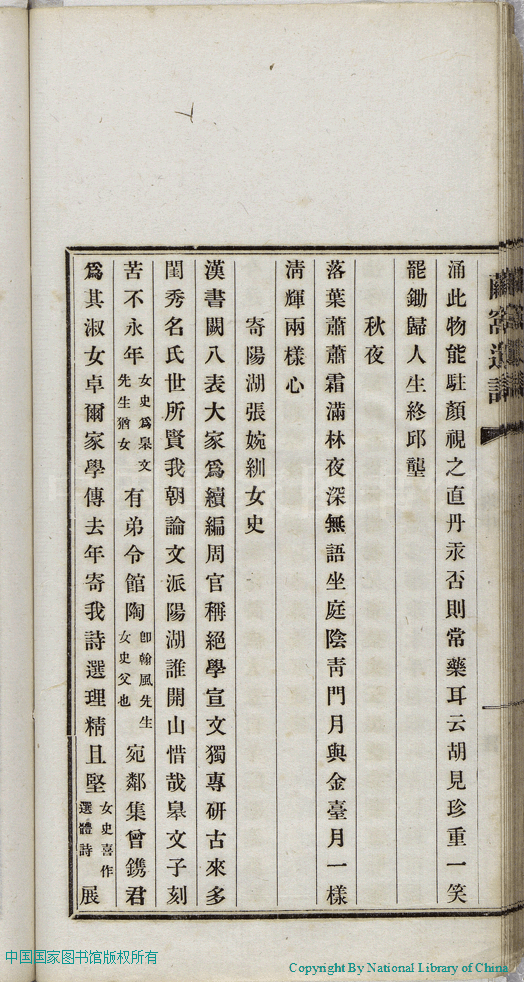 涌此物能駐顏視之直丹汞否則常藥耳云胡見珍重一笑
罷鋤歸人生終邱壟
秋夜
落葉蕭蕭霜滿林夜深無語坐庭陰靑門月與金臺月一樣
淸輝兩樣心
寄陽湖張婉紃女史
漢書闕八表大家爲續編周官稱絕學宣文獨專研古來多
閨秀名氏世所賢我朝論文派陽湖誰開山惜哉皋文子刻
苦不永年女史爲皋文先生猶女有弟令館陶卽翰風先生女史父也宛鄰集曾鎸君
爲其淑女卓爾家學傳去年寄我詩選理精且堅女史喜作選體詩展
中国国家图书馆版权所有
Copyright By National Library of China